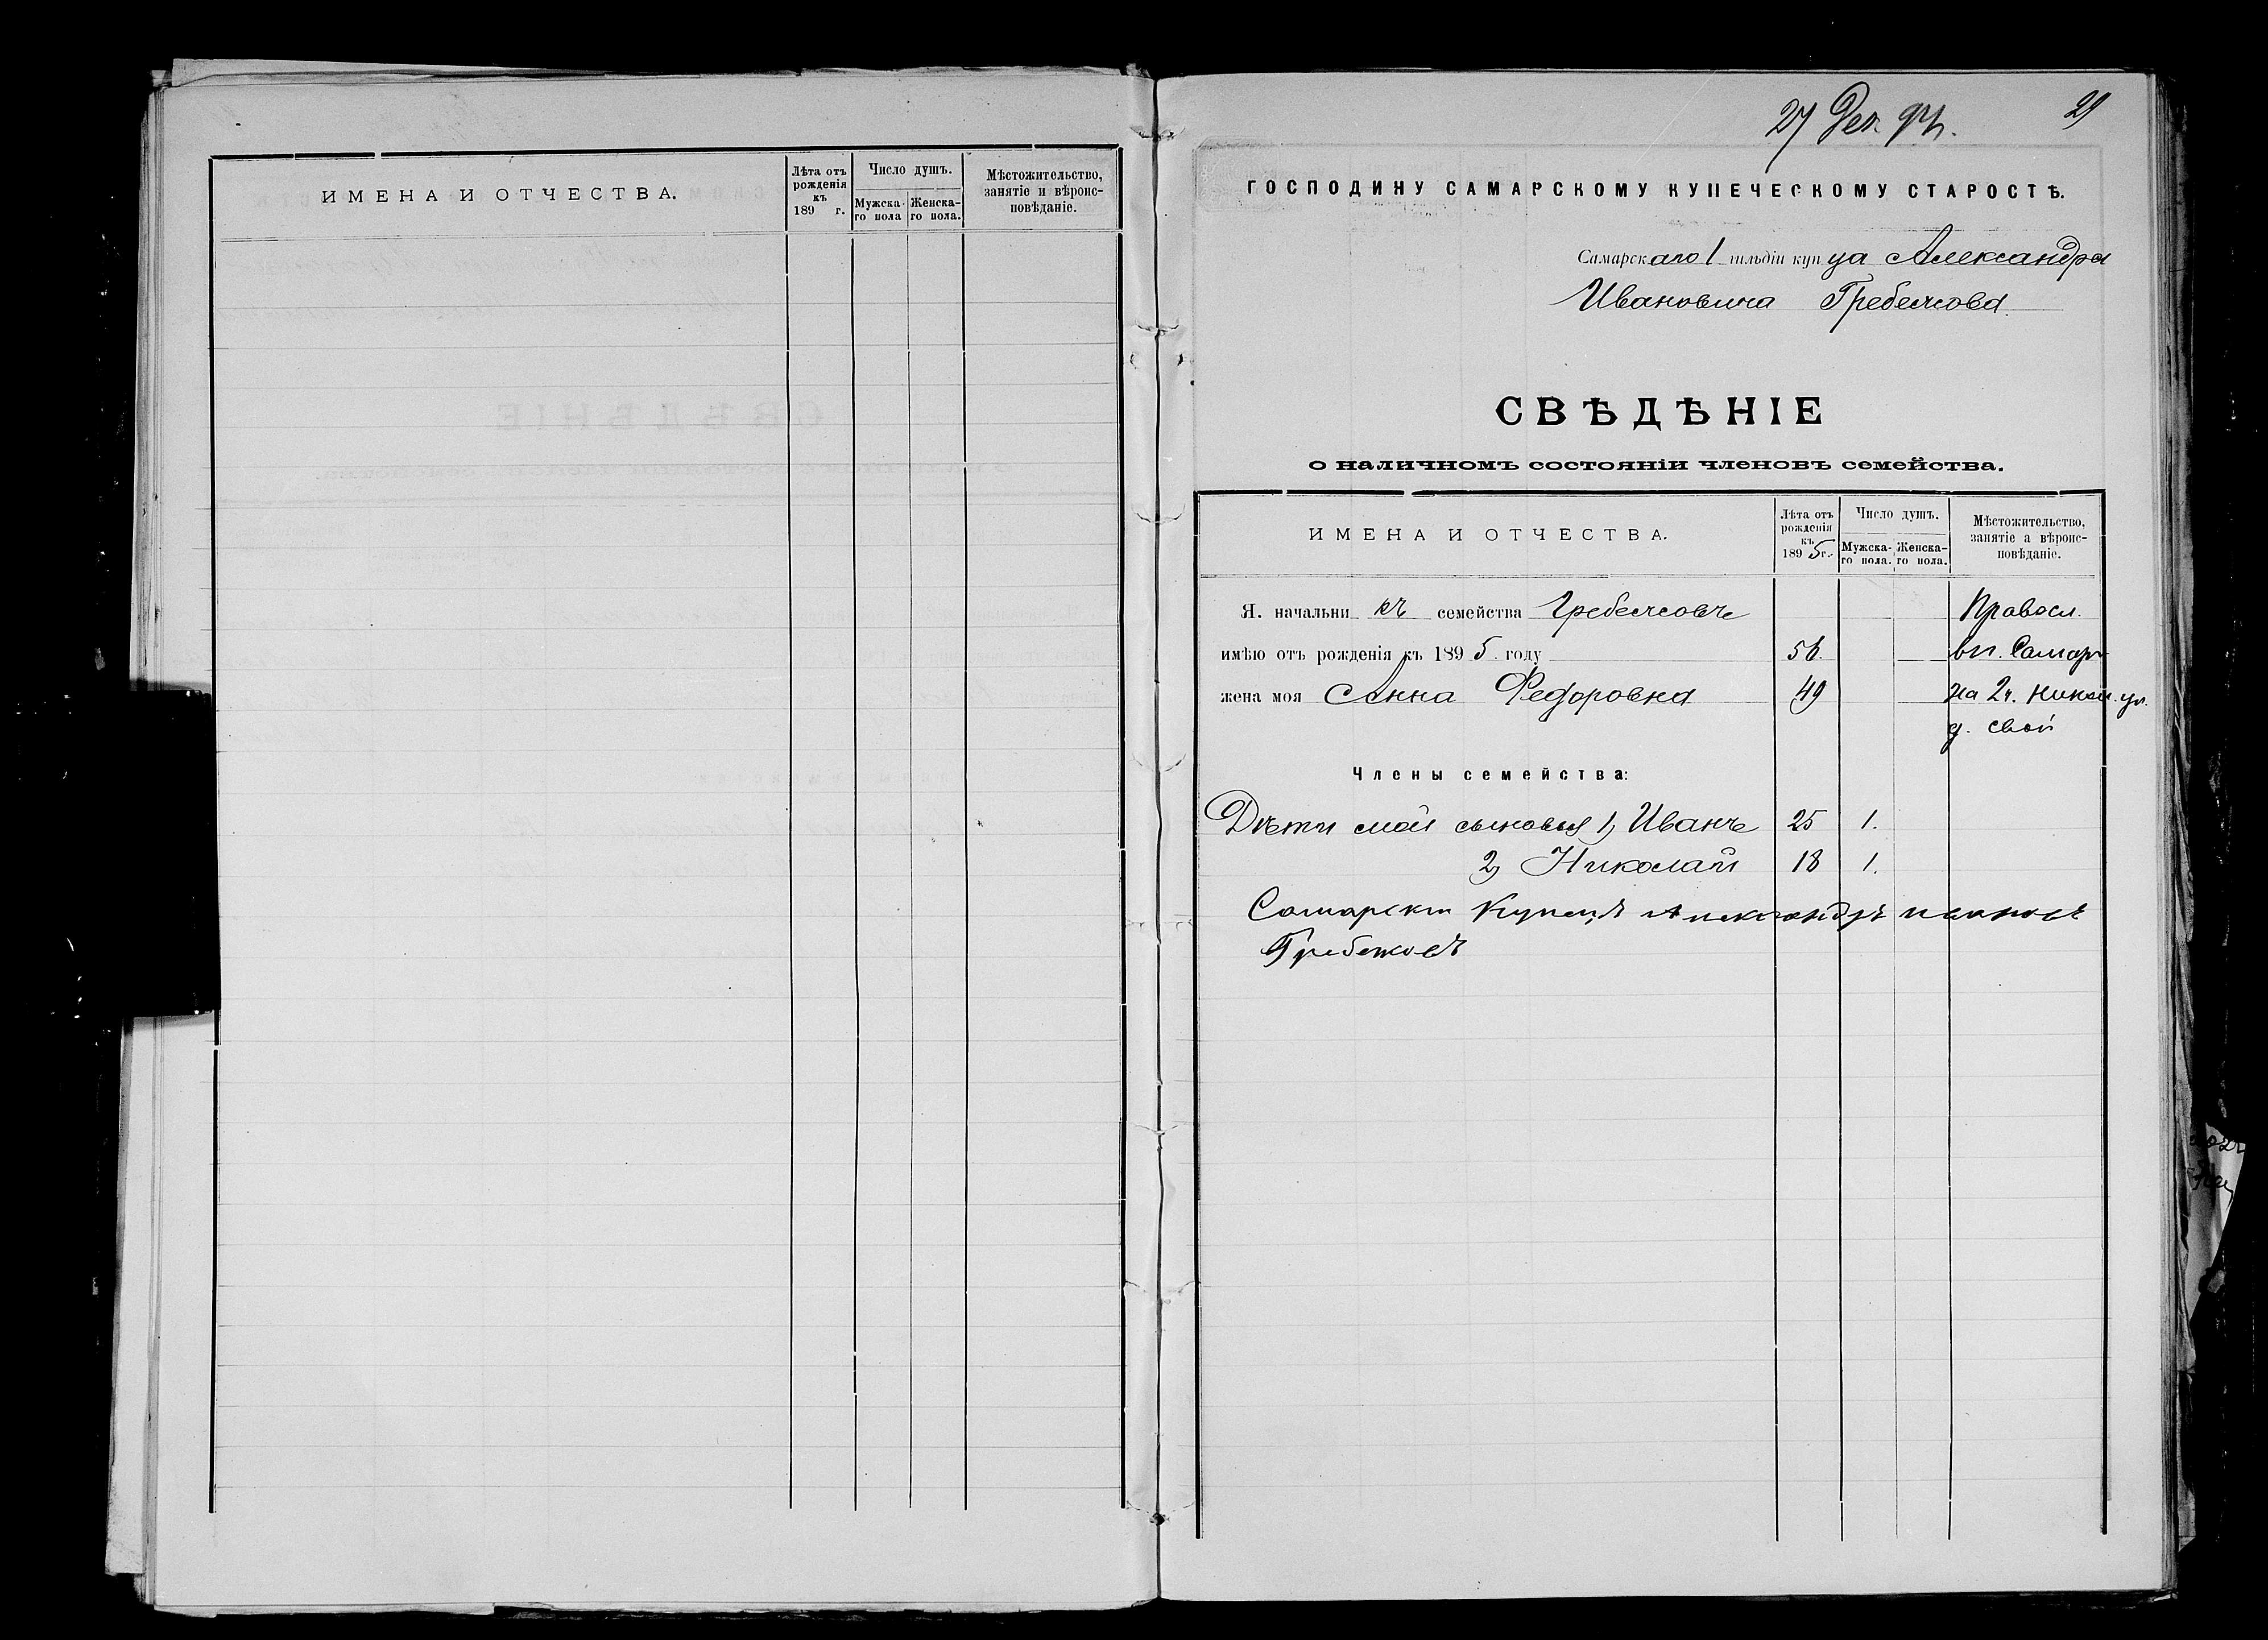 ИМЕНА И ОТЧЕСТВА.
Лѣта отъ
рожденія
къ
189 г.
Число душъ.
Мужска-
го пола
Женска-
го пола.
Мѣстожительство,
занятіе и вѣроис-
повѣданіе.
27 Дек. 94.
29
ГОСПОДИНУ САМАРСКОМУ КУПЕЧЕСКОМУ СТАРОСТѢ.
Самарскаго 1 гильдіи купца Александра
Ивановича Гребежова
СВѢДѢНІЕ
о наличномъ состояніи членовъ семейства.
ИМЕНА И ОТЧЕСТВА.
Лѣта отъ
рожденія
къ
1895 г.
Число душъ.
Мужска-
го пола.
Женска-
го пола.
Мѣстожительство,
занятіе а вѣроис-
повѣданіе.
Я. начальникъ семейства Гребежовъ Правосл.
имѣю отъ рожденія къ 1895. году 56. вг. Самар
жена моя Анна Федоровна 49 на 2ч. Никол. ул.
д. свой
Члены семейства:
Дѣти мои сыновья 1, Иванъ 25 1.
2, Николай 18 1.
Самарскій Купецъ Александръ Ивановъ
Гребежовъ